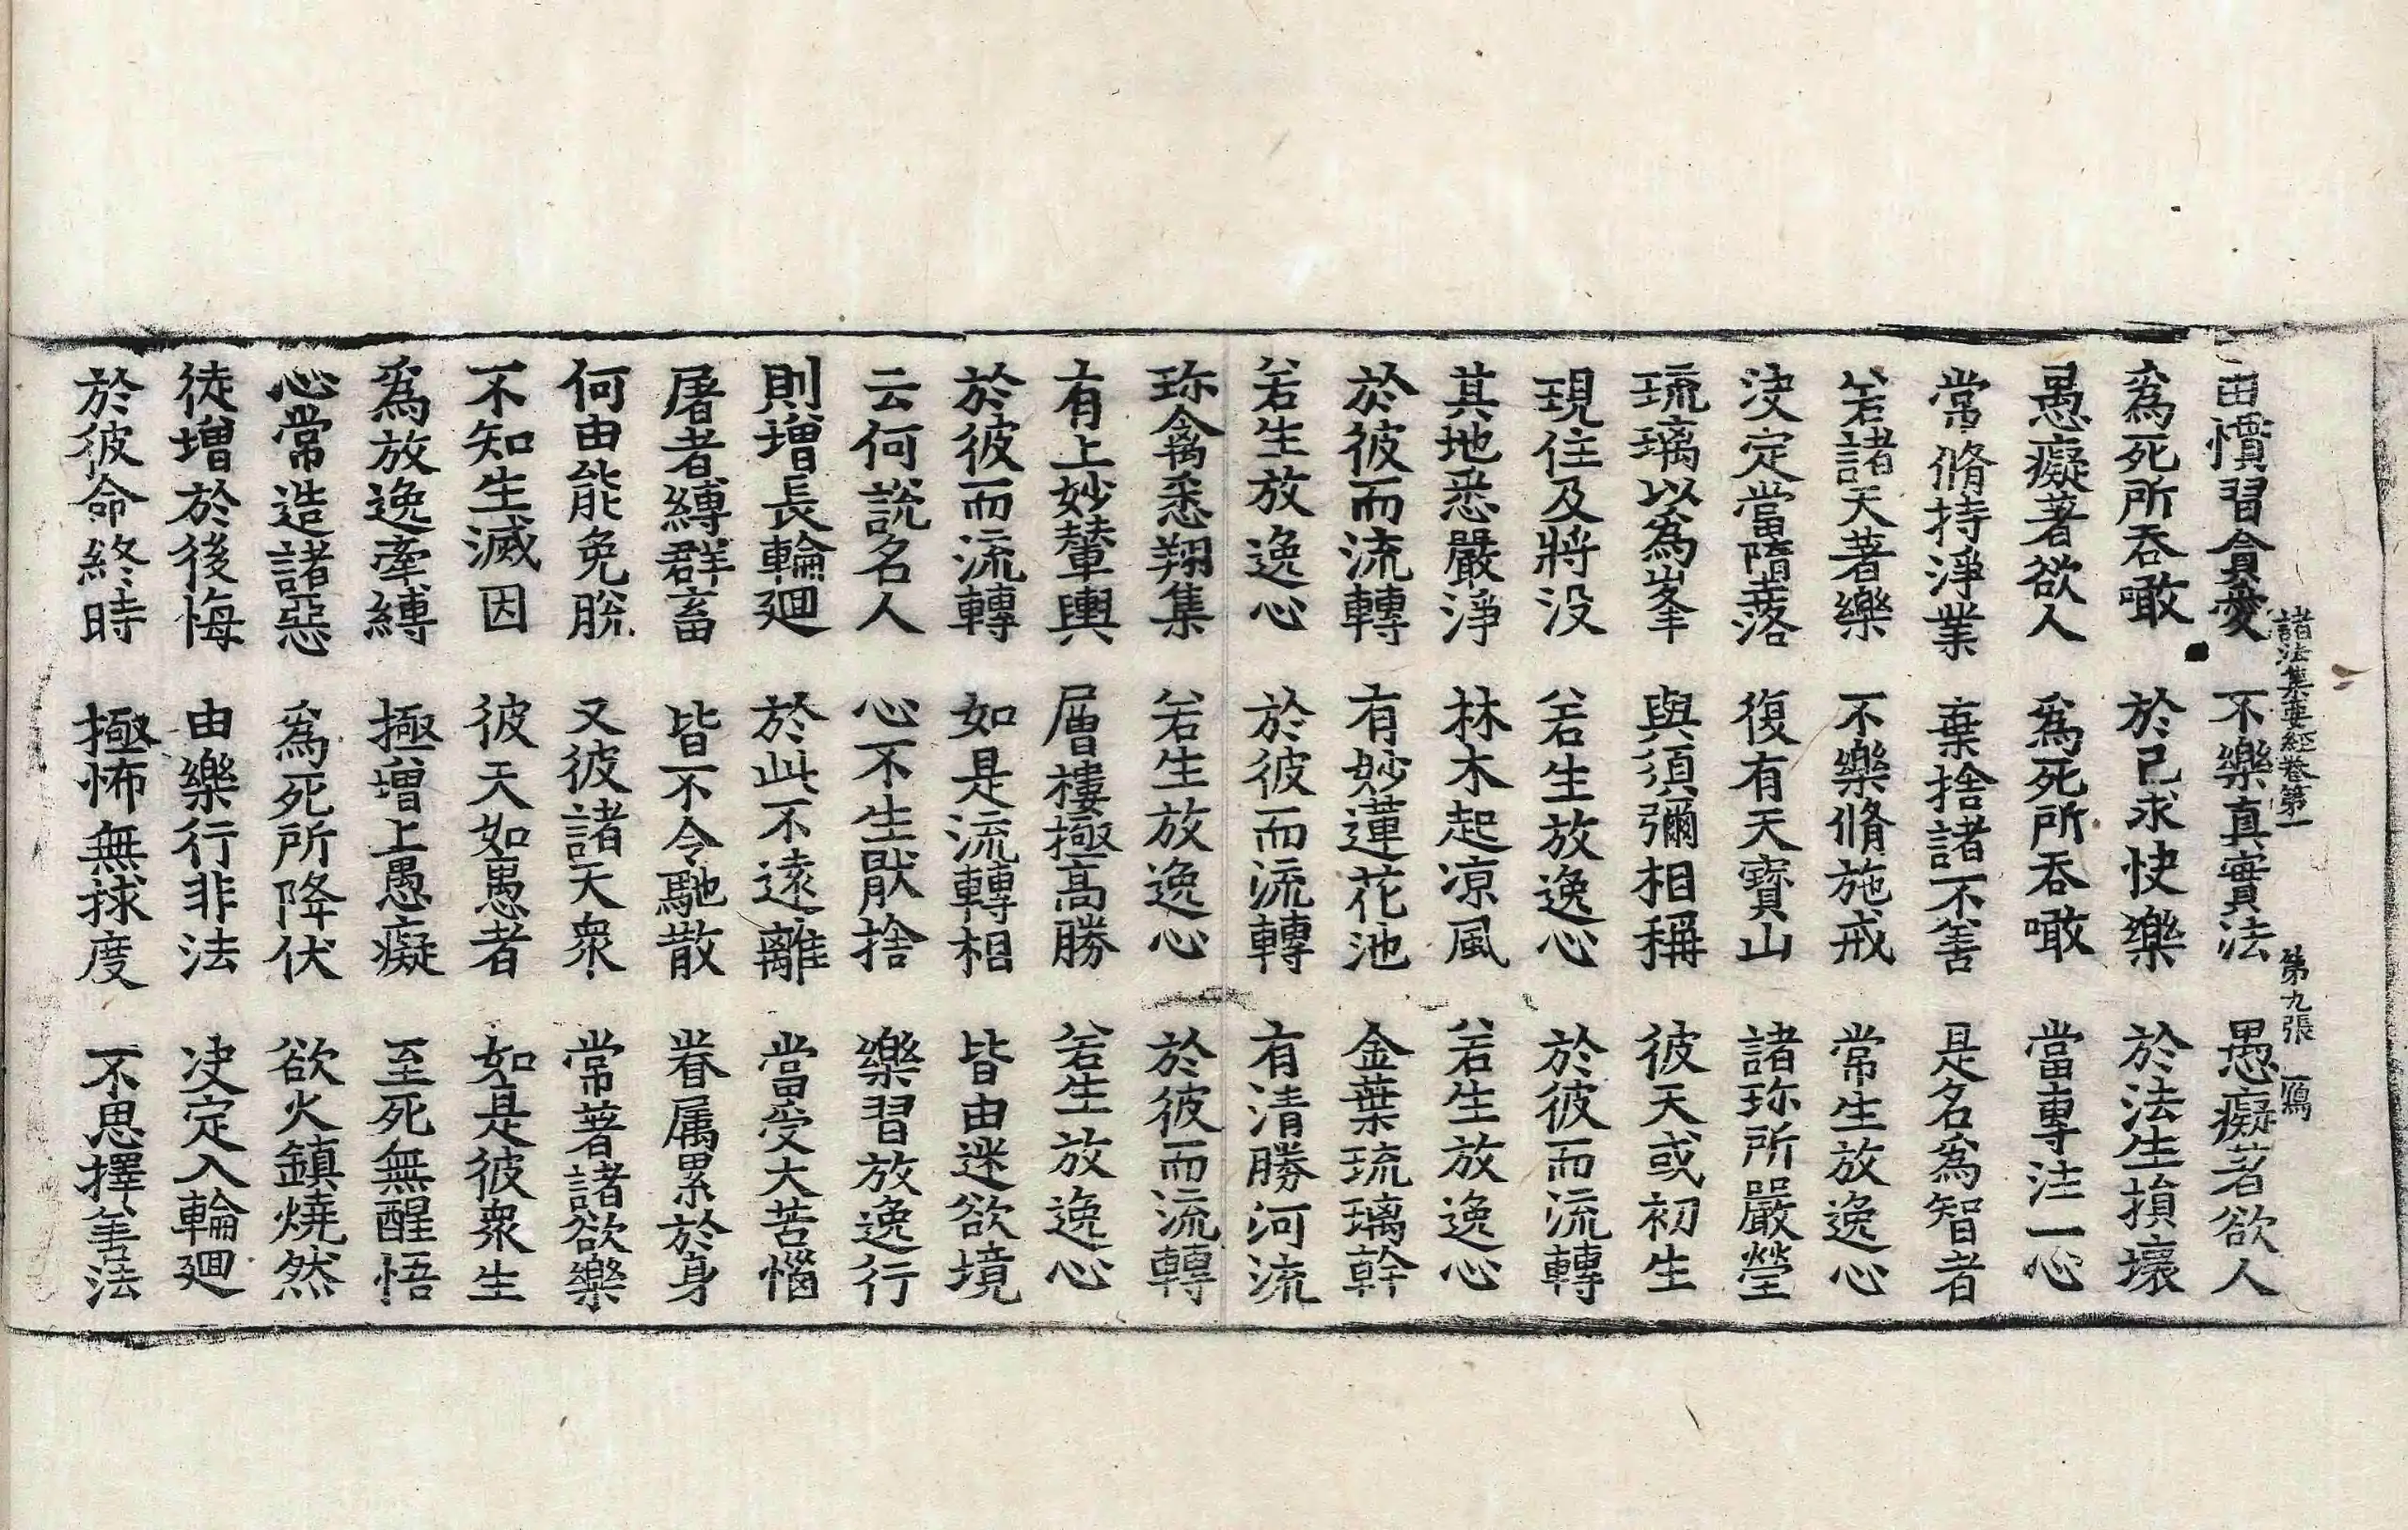 諸法集要經卷第一　第九張　鴈
由慣習貪愛　不樂真實法　愚癡著欲人
為死所吞噉　於己求快樂　於法生損壞
愚癡著欲人　為死所吞噉　當專注一心
常脩持淨業　棄捨諸不善　是名為智者
若諸天著樂　不樂脩施戒　常生放逸心
決定當墮落　復有天寶山　諸珎所嚴瑩
琉璃以為峯　與須彌相稱　彼天或初生
現住及將没　若生放逸心　於彼而流轉
其地悉嚴淨　林木起凉風　若生放逸心
於彼而流轉　有妙蓮花池　金葉琉璃幹
若生放逸心　於彼而流轉　有清勝河流
珎禽悉翔集　若生放逸心　於彼而流轉
有上妙輦輿　層樓極高勝　若生放逸心
於彼而流轉　如是流轉相　皆由迷欲境
云何說名人　心不生猒捨　樂習放逸行
則增長輪迴　於此不遠離　當受大苦惱
屠者縛群畜　皆不令馳散　眷属累於身
何由能免脫　又彼諸天衆　常著諸欲樂
不知生滅因　彼天如愚者　如是彼衆生
為放逸牽縛　極增上愚癡　至死無醒悟
心常造諸惡　為死所降伏　欲火鎮燒然
徒增於後悔　由樂行非法　决定入輪迴
於彼命終時　極怖無捄度　不思擇善法